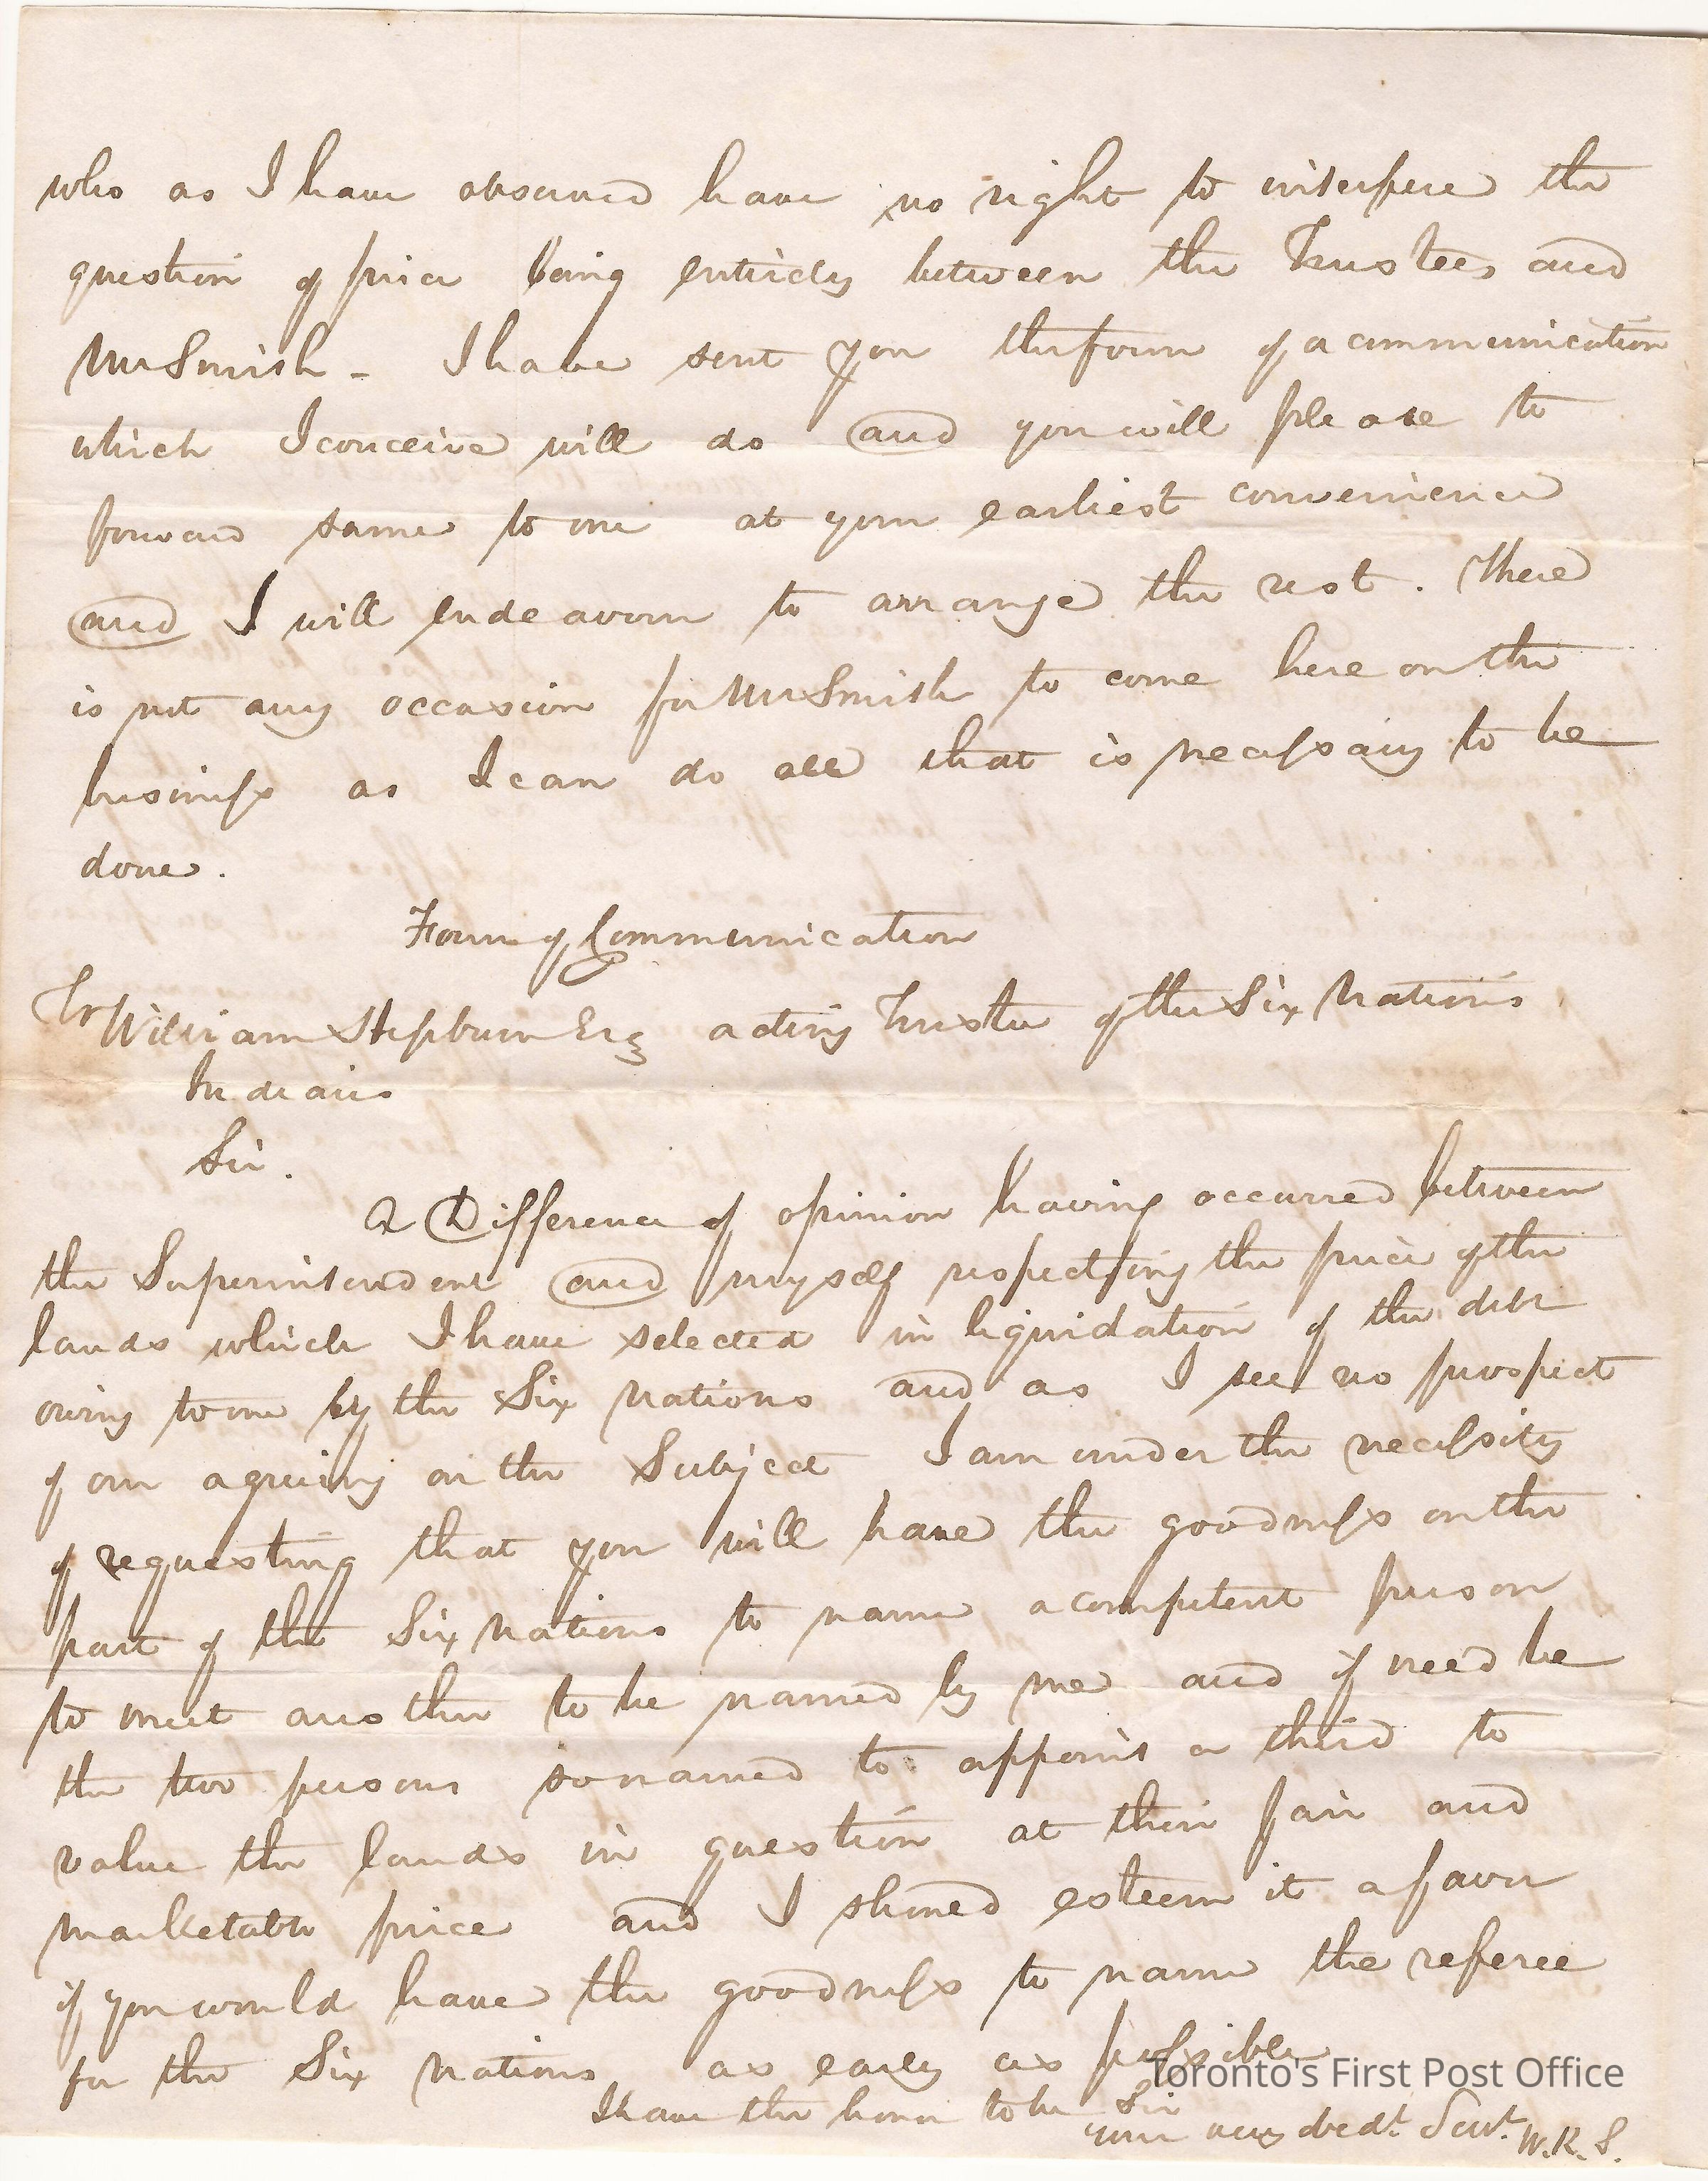 who as I have observed have no right to interfere the
question of price being entirely between the Trustees and
Mr Smith - I have sent you the form of a communication
which I conceive will do and you will please to
forward same to me at your earliest convenience
and I will endeavour to arrange the rest. There
is not any occasion for Mr Smith to come here on the
business as I can do all that is necessary to be
done.
Form of Communication
To William Hepburn Esq acting Trustee of the Six Nations
Indians
Sir.
A Difference of opinion having occurred between
the Superintendent and myself respecting the price of the
lands which I have selected in liquidation of the debt
owing to me by the Six Nations and as I see no prospect
of our agreeing on the Subject I am under the necessity
of requesting that you will have the goodness on the
part of the Six Nations to name a competent person
to meet another to be named by me and if need be
the two persons so named to appoint a third to
value the lands in question at their fair and
marketable price and I should esteem it a favor
if you would have the goodness to name the referee
for the Six Nations as early as possible
I have the honor to be Sir
your very obedt. Servt. W.K.S.
Toronto's First Post Office